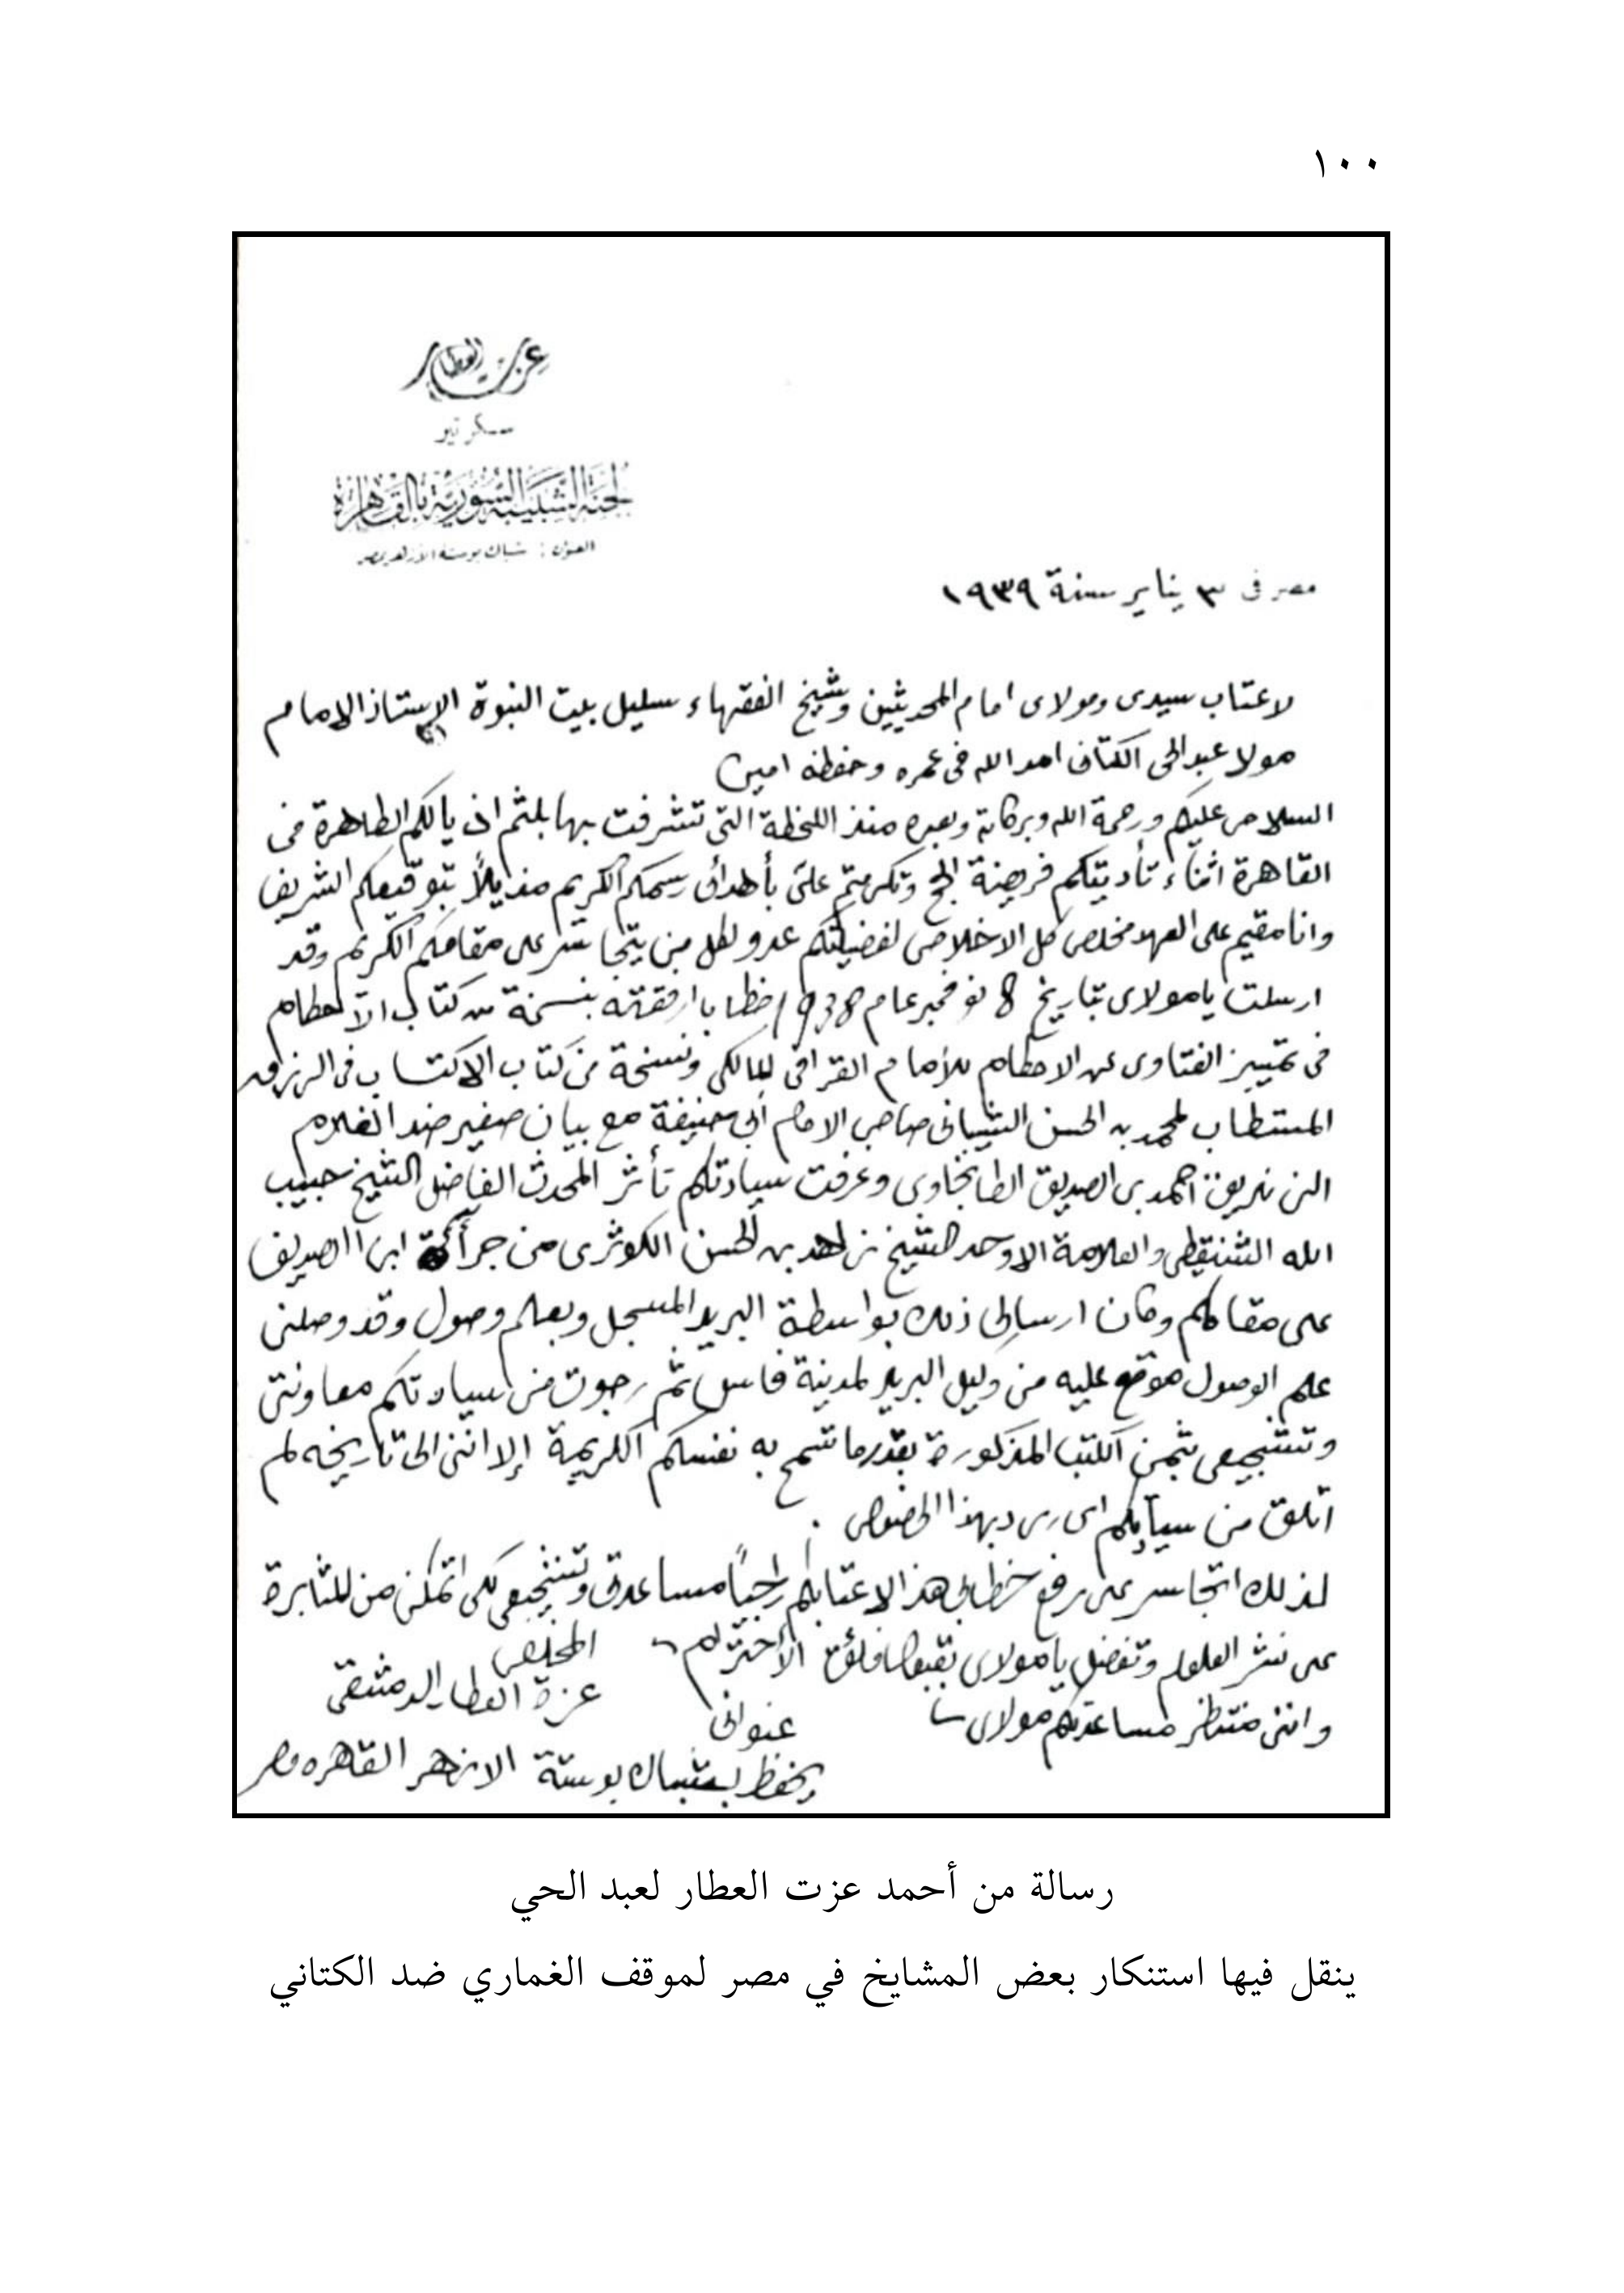 ١٠٠
عزت العطار
سكرتير
لجنة الشبيبة السورية بالقاهرة
العنوان : شباك بوستة الازهر بمصر
مصر في ٣ يناير سنة ١٩٣٩
لاعتاب سيدى ومولاى امام المحدثين وشيخ الفقهاء سليل بيت النبوة الاستاذ الامام
مولا عبد الحى الكتانى امد الله فى عمره وحفظه امين
السلام عليكم ورحمة الله وبركاته وبعد منذ اللحظة التى تشرفت بها بلثم اذيالكم الطاهرة فى
القاهرة اثناء تأديتكم فريضة الحج وتكرمتم على بأهدائى رسمكم الكريم مذيلاً بتوقيعكم الشريف
وانا مقيم على العهد مخلص كل الاخلاص لفضيلتكم عدو لكل من يتجاسر على مقامكم الكريم وقد
ارسلت يا مولاى بتاريخ 8 نوفمبر عام 1938 خطابا ارفقته بنسخة من كتاب الاحكام
فى تمييز الفتاوى عن الاحكام للأمام القرافى المالكى ونسخة من كتاب الاكتساب فى الرزق
المستطاب لمحمد بن الحسن الشيبانى صاحب الامام أبى حنيفة مع بيان صغير ضد الغلام
احمد بن الصديق الطانجاوى وعرفت سيادتكم تأثر المحدث الفاضل الشيخ حبيب
الله الشنقيطى والعلامة الاوحد الشيخ زاهد بن الحسن الكوثرى من جرأة ابن الصديق
على مقامكم وكان ارسالى ذلك بواسطة البريد المسجل وبعلم وصول وقد وصلنى
علم الوصول موقع عليه من وكيل البريد لمدينة فاس ثم رجوت من سيادتكم معاونتى
وتشجيعى بثمن الكتب المذكورة بقدر ما تسمح به نفسكم الكريمة إلا اننى الى تاريخه لم
اتلق من سيادتكم اى رد بهذا الخصوص .
لذلك اتجاسر على رفع خطابى هذا لاعتابكم راجياً مساعدتى وتشجيعى لكى اتمكن من المثابرة
على نشر العلوم وتفضل يا مولاى بقبول فائق الأحترام
المخلص
عزة العطار الدمشقى
واننى منتظر مساعدتكم مولاى
عنوانى
يحفظ بشباك بوستة الازهر القاهره مصر
رسالة من أحمد عزت العطار لعبد الحي
ينقل فيها استنكار بعض المشايخ في مصر لموقف الغماري ضد الكتاني